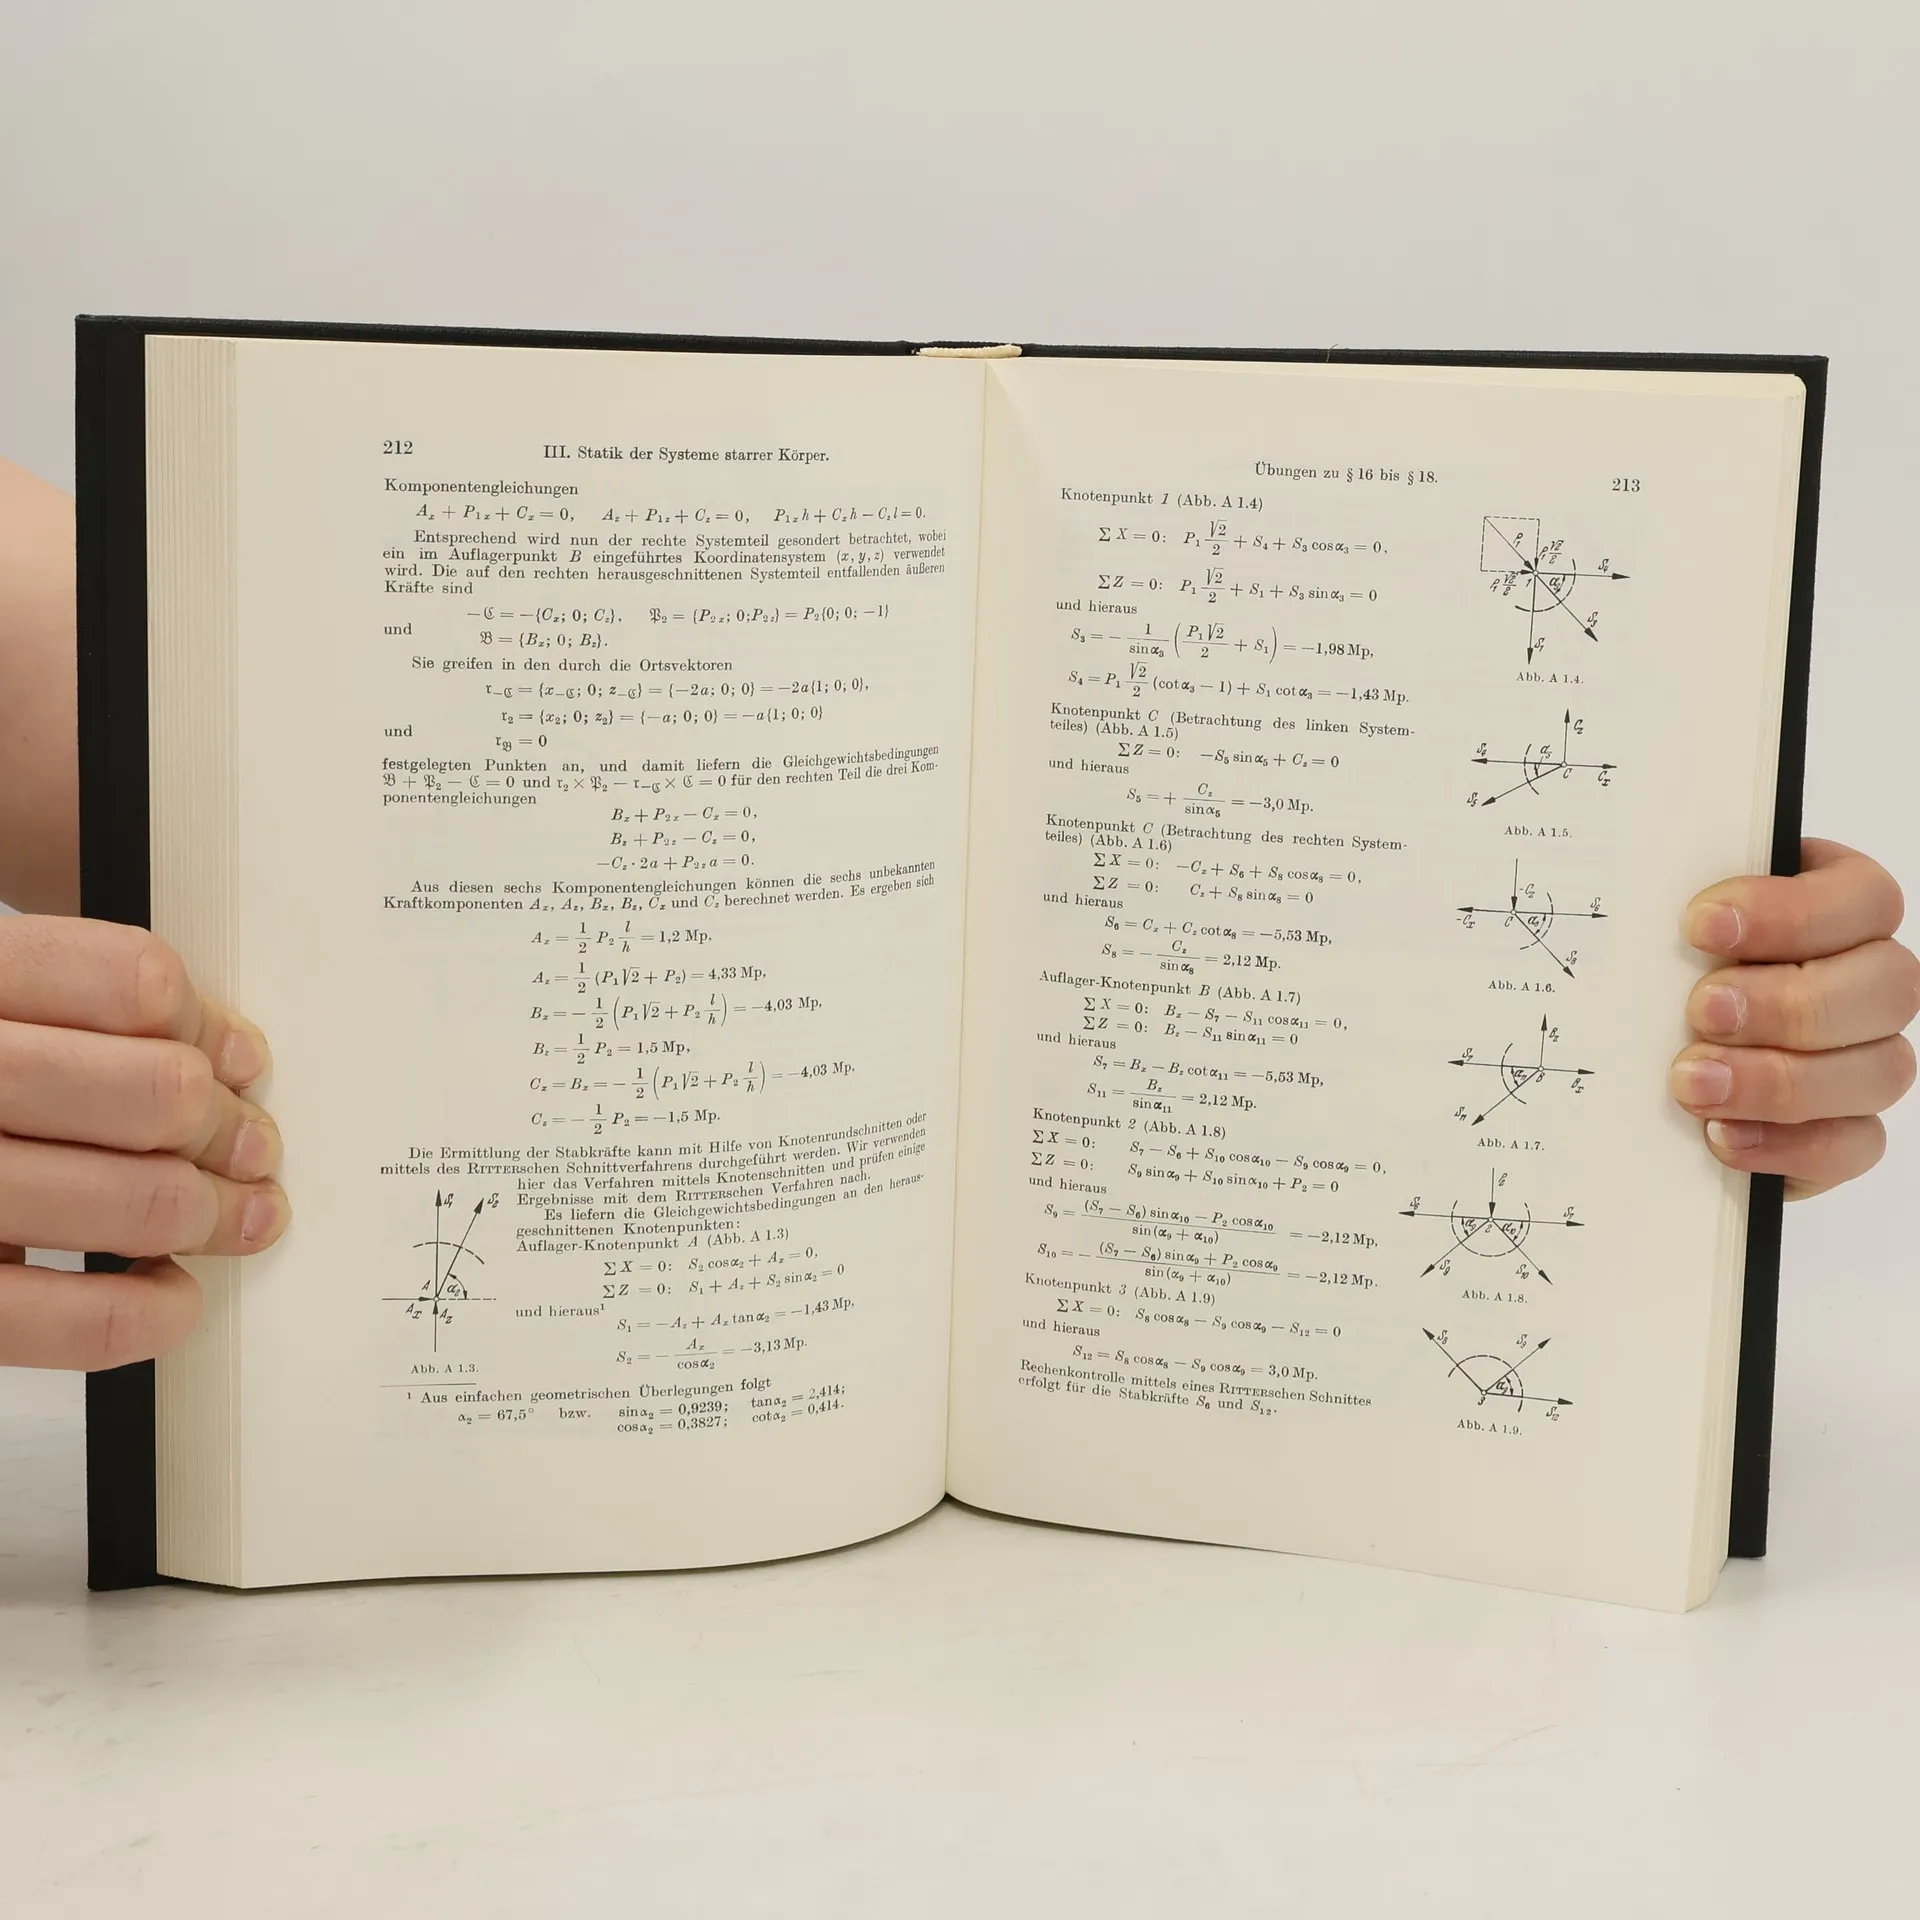 212
III. Statik der Systeme starrer Körper.
Komponentengleichungen
Aₓ + P₁ₓ + Cₓ = 0, A_z + P₁z + C_z = 0, P₁ₓh + Cₓh − C_zl = 0.
Entsprechend wird nun der rechte Systemteil gesondert betrachtet, wobei
ein im Auflagerpunkt B eingeführtes Koordinatensystem (x, y, z) verwendet
wird. Die auf den rechten herausgeschnittenen Systemteil entfallenden äußeren
Kräfte sind
−ℭ = −{Cₓ; 0; C_z}, 𝔓₂ = {P₂ₓ; 0; P₂z} = P₂{0; 0; −1}
und
𝔅 = {Bₓ; 0; B_z}.
Sie greifen in den durch die Ortsvektoren
𝔯_−ℭ = {x_−ℭ; 0; z_−ℭ} = {−2a; 0; 0} = −2a{1; 0; 0},
𝔯₂ = {x₂; 0; z₂} = {−a; 0; 0} = −a{1; 0; 0}
und
𝔯_𝔅 = 0
festgelegten Punkten an, und damit liefern die Gleichgewichtsbedingungen
𝔅 + 𝔓₂ − ℭ = 0 und 𝔯₂ × 𝔓₂ − 𝔯_−ℭ × ℭ = 0 für den rechten Teil die drei Kom-
ponentengleichungen
Bₓ + P₂ₓ − Cₓ = 0,
B_z + P₂z − C_z = 0,
−C_z · 2a + P₂z a = 0.
Aus diesen sechs Komponentengleichungen können die sechs unbekannten
Kraftkomponenten Aₓ, A_z, Bₓ, B_z, Cₓ und C_z berechnet werden. Es ergeben sich
Aₓ = 1/2 P₂ l/h = 1,2 Mp,
A_z = 1/2 (P₁√2 + P₂) = 4,33 Mp,
Bₓ = − 1/2 (P₁√2 + P₂ l/h) = −4,03 Mp,
B_z = 1/2 P₂ = 1,5 Mp,
Cₓ = Bₓ = − 1/2 (P₁√2 + P₂ l/h) = −4,03 Mp,
C_z = − 1/2 P₂ = −1,5 Mp.
Die Ermittlung der Stabkräfte kann mit Hilfe von Knotenrundschnitten oder
mittels des RITTERschen Schnittverfahrens durchgeführt werden. Wir verwenden
hier das Verfahren mittels Knotenschnitten und prüfen einige
Ergebnisse mit dem RITTERschen Verfahren nach.
Es liefern die Gleichgewichtsbedingungen an den heraus-
geschnittenen Knotenpunkten:
Auflager-Knotenpunkt A (Abb. A 1.3)
∑X = 0: S₂ cos α₂ + Aₓ = 0,
∑Z = 0: S₁ + A_z + S₂ sin α₂ = 0
und hieraus¹
S₁ = −A_z + Aₓ tan α₂ = −1,43 Mp,
S₂ = − Aₓ/cos α₂ = −3,13 Mp.
S₁ S₂
A α₂
Aₓ A_z
Abb. A 1.3.
¹ Aus einfachen geometrischen Überlegungen folgt
α₂ = 67,5° bzw. sin α₂ = 0,9239; tan α₂ = 2,414;
cos α₂ = 0,3827; cot α₂ = 0,414.
Übungen zu § 16 bis § 18.
213
Knotenpunkt 1 (Abb. A 1.4)
∑X = 0: P₁ √2/2 + S₄ + S₃ cos α₃ = 0,
∑Z = 0: P₁ √2/2 + S₁ + S₃ sin α₃ = 0
und hieraus
S₃ = − 1/sin α₃ (P₁√2/2 + S₁) = −1,98 Mp,
S₄ = P₁ √2/2 (cot α₃ − 1) + S₁ cot α₃ = −1,43 Mp.
P₁ P₁ √2/2 S₄
P₁ √2/2 1 α₃
S₃
S₁
Abb. A 1.4.
Knotenpunkt C (Betrachtung des linken System-
teiles) (Abb. A 1.5)
∑Z = 0: −S₅ sin α₅ + C_z = 0
und hieraus
S₅ = + C_z/sin α₅ = −3,0 Mp.
C_z
S₆ α₅ C Cₓ
S₅
Abb. A 1.5.
Knotenpunkt C (Betrachtung des rechten System-
teiles) (Abb. A 1.6)
∑X = 0: −Cₓ + S₆ + S₈ cos α₈ = 0,
∑Z = 0: C_z + S₈ sin α₈ = 0
und hieraus
S₆ = Cₓ + C_z cot α₈ = −5,53 Mp,
S₈ = − C_z/sin α₈ = 2,12 Mp.
−C_z
−Cₓ C α₈ S₆
S₈
Abb. A 1.6.
Auflager-Knotenpunkt B (Abb. A 1.7)
∑X = 0: Bₓ − S₇ − S₁₁ cos α₁₁ = 0,
∑Z = 0: B_z − S₁₁ sin α₁₁ = 0
und hieraus
S₇ = Bₓ − B_z cot α₁₁ = −5,53 Mp,
S₁₁ = B_z/sin α₁₁ = 2,12 Mp.
B_z
S₇ α₁₁ B Bₓ
S₁₁
Abb. A 1.7.
Knotenpunkt 2 (Abb. A 1.8)
∑X = 0: S₇ − S₆ + S₁₀ cos α₁₀ − S₉ cos α₉ = 0,
∑Z = 0: S₉ sin α₉ + S₁₀ sin α₁₀ + P₂ = 0
und hieraus
S₉ = (S₇ − S₆) sin α₁₀ − P₂ cos α₁₀/sin (α₉ + α₁₀) = −2,12 Mp,
S₁₀ = − (S₇ − S₆) sin α₉ + P₂ cos α₉/sin (α₉ + α₁₀) = −2,12 Mp.
P₂
S₆ α₉ 2 α₁₀ S₇
S₉ S₁₀
Abb. A 1.8.
Knotenpunkt 3 (Abb. A 1.9)
∑X = 0: S₈ cos α₈ − S₉ cos α₉ − S₁₂ = 0
und hieraus
S₁₂ = S₈ cos α₈ − S₉ cos α₉ = 3,0 Mp.
Rechenkontrolle mittels eines RITTERschen Schnittes
erfolgt für die Stabkräfte S₆ und S₁₂.
S₈ S₉
3 α₉ S₁₂
Abb. A 1.9.